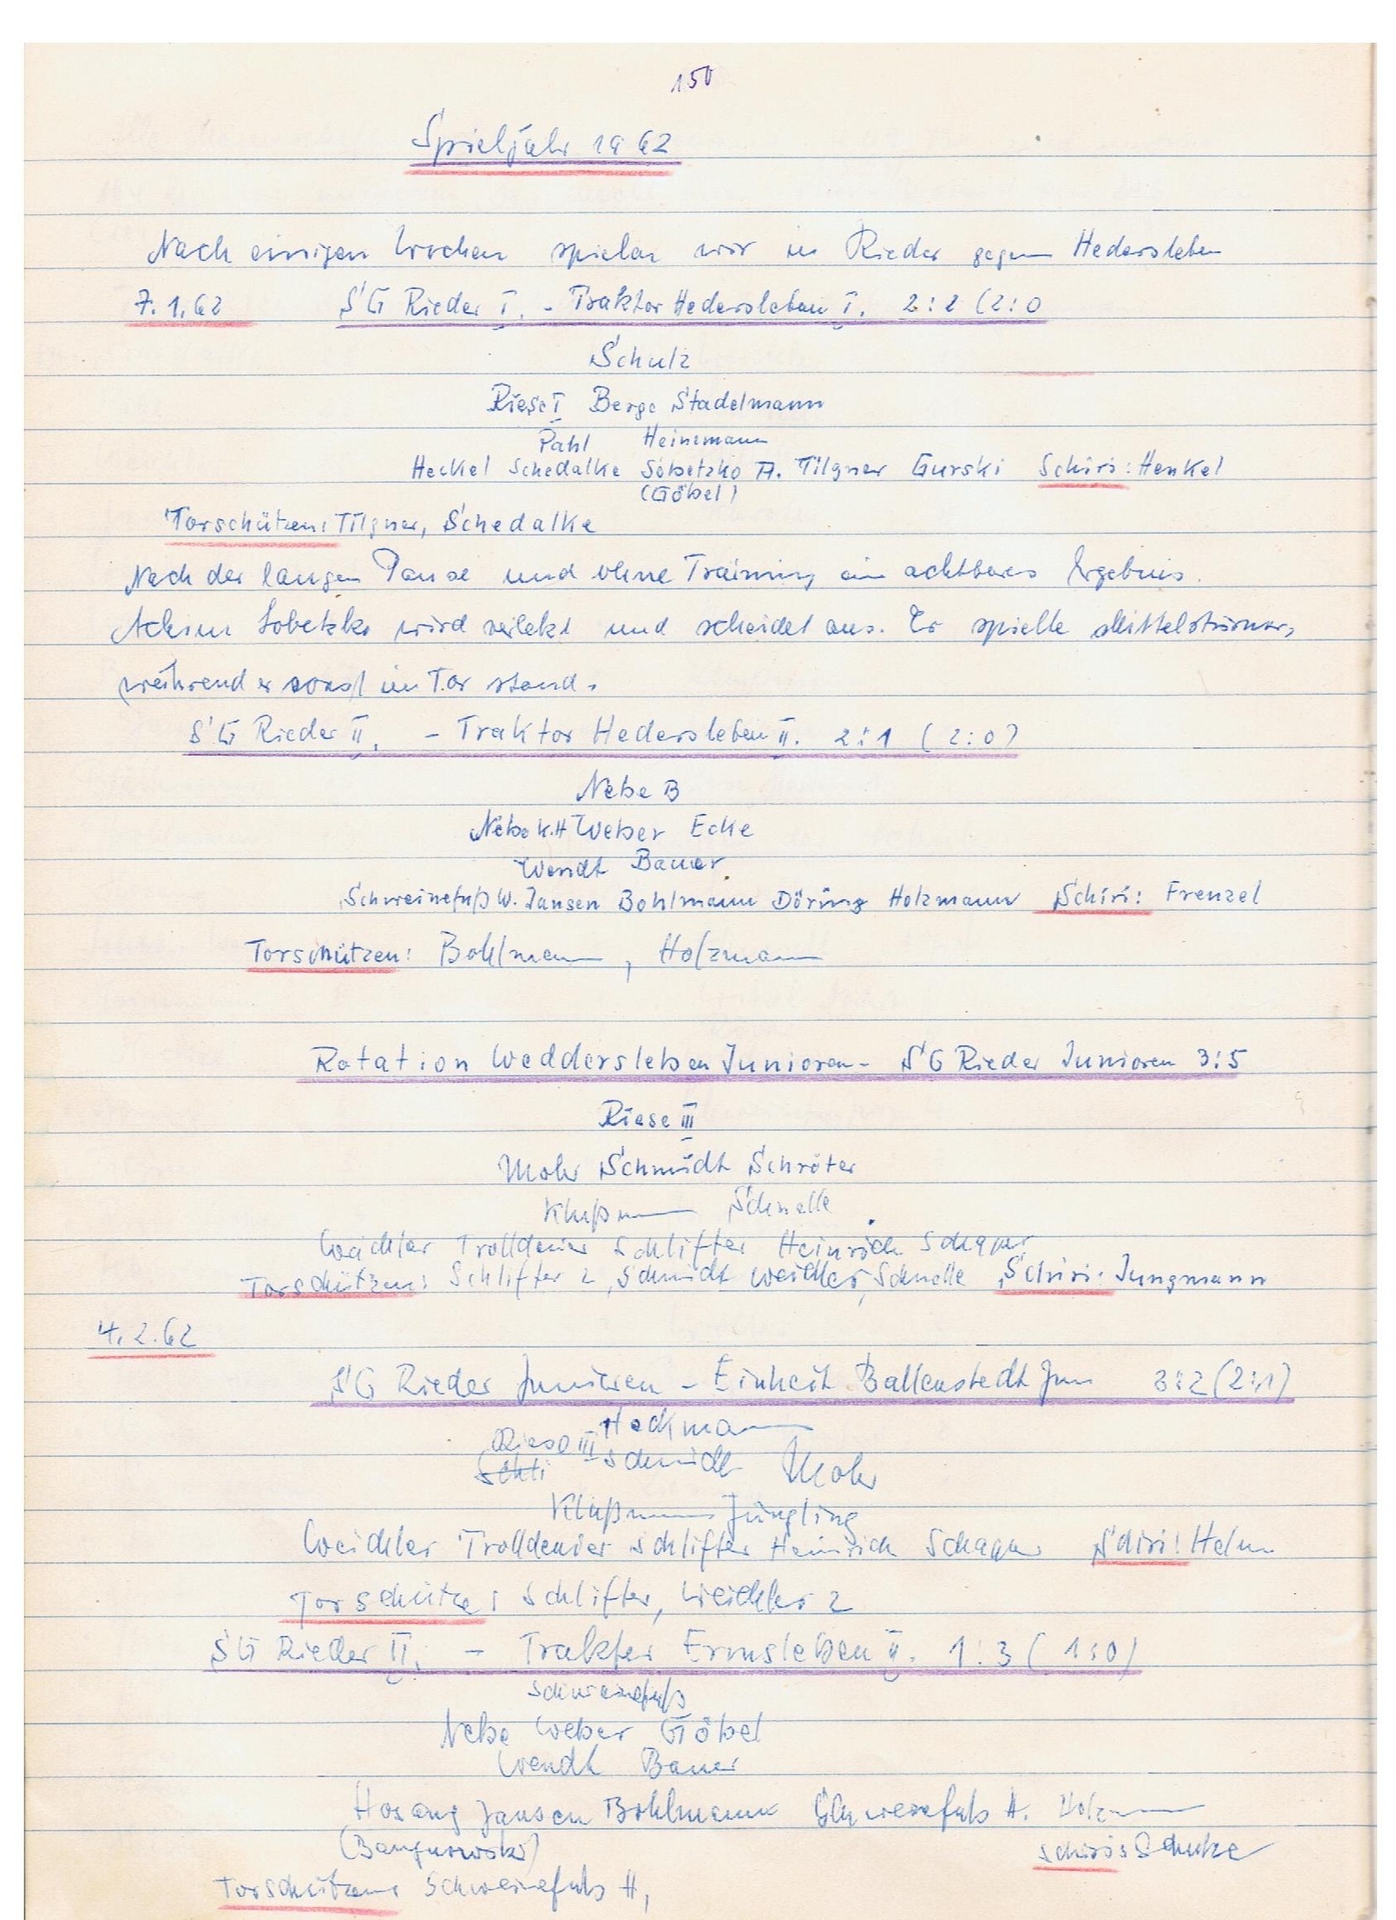 150
Spieljahr 1962
Nach einigen Wochen spielen wir in Rieder gegen Hedersleben
7.1.62 SG Rieder I. - Traktor Hedersleben I. 2:2 (2:0
Schulz
Riese I Berge Stadelmann
Pahl Heinemann
Heckel Schedalke Sobetzko A. Tilgner Gurski Schiri: Henkel
(Göbel)
Torschützen: Tilgner, Schedalke
Nach der langen Pause und ohne Training ein achtbares Ergebnis.
Achim Sobetzko wird verletzt und scheidet aus. Er spielte Mittelstürmer,
während er sonst im Tor stand.
SG Rieder II. - Traktor Hedersleben II. 2:1 (2:0)
Nebe B
Nebe K.H Weber Ecke
Wendt Bauer
Schweinefuß W. Jansen Bohlmann Döring Holzmann Schiri: Frenzel
Torschützen: Bohlmann, Holzmann
Rotation Weddersleben Junioren - SG Rieder Junioren 3:5
Riese III
Mohr Schmidt Schröter
Klußmann Schnelle
Weichler Trolldenier Schlifter Heinrich Schaper
Torschützen: Schlifter 2, Schmidt Weichler, Schnelle Schiri: Jungmann
4.2.62
SG Rieder Junioren - Einheit Ballenstedt Jun 3:2 (2:1)
Heckmann
Riese III Schmidt Mohr
Schli
Klußmann Jüngling
Weichler Trolldenier Schlifter Heinrich Schaper Schiri: Helm
Torschütze: Schlifter, Weichler 2
SG Rieder II. - Traktor Ermsleben II. 1:3 (1:0)
Schweinefuß
Nebe Weber Göbel
Wendt Bauer
Hosang Jansen Bohlmann Schweinefuß H. Holzmann
Schiri:
Torschützen: Schweinefuß H,